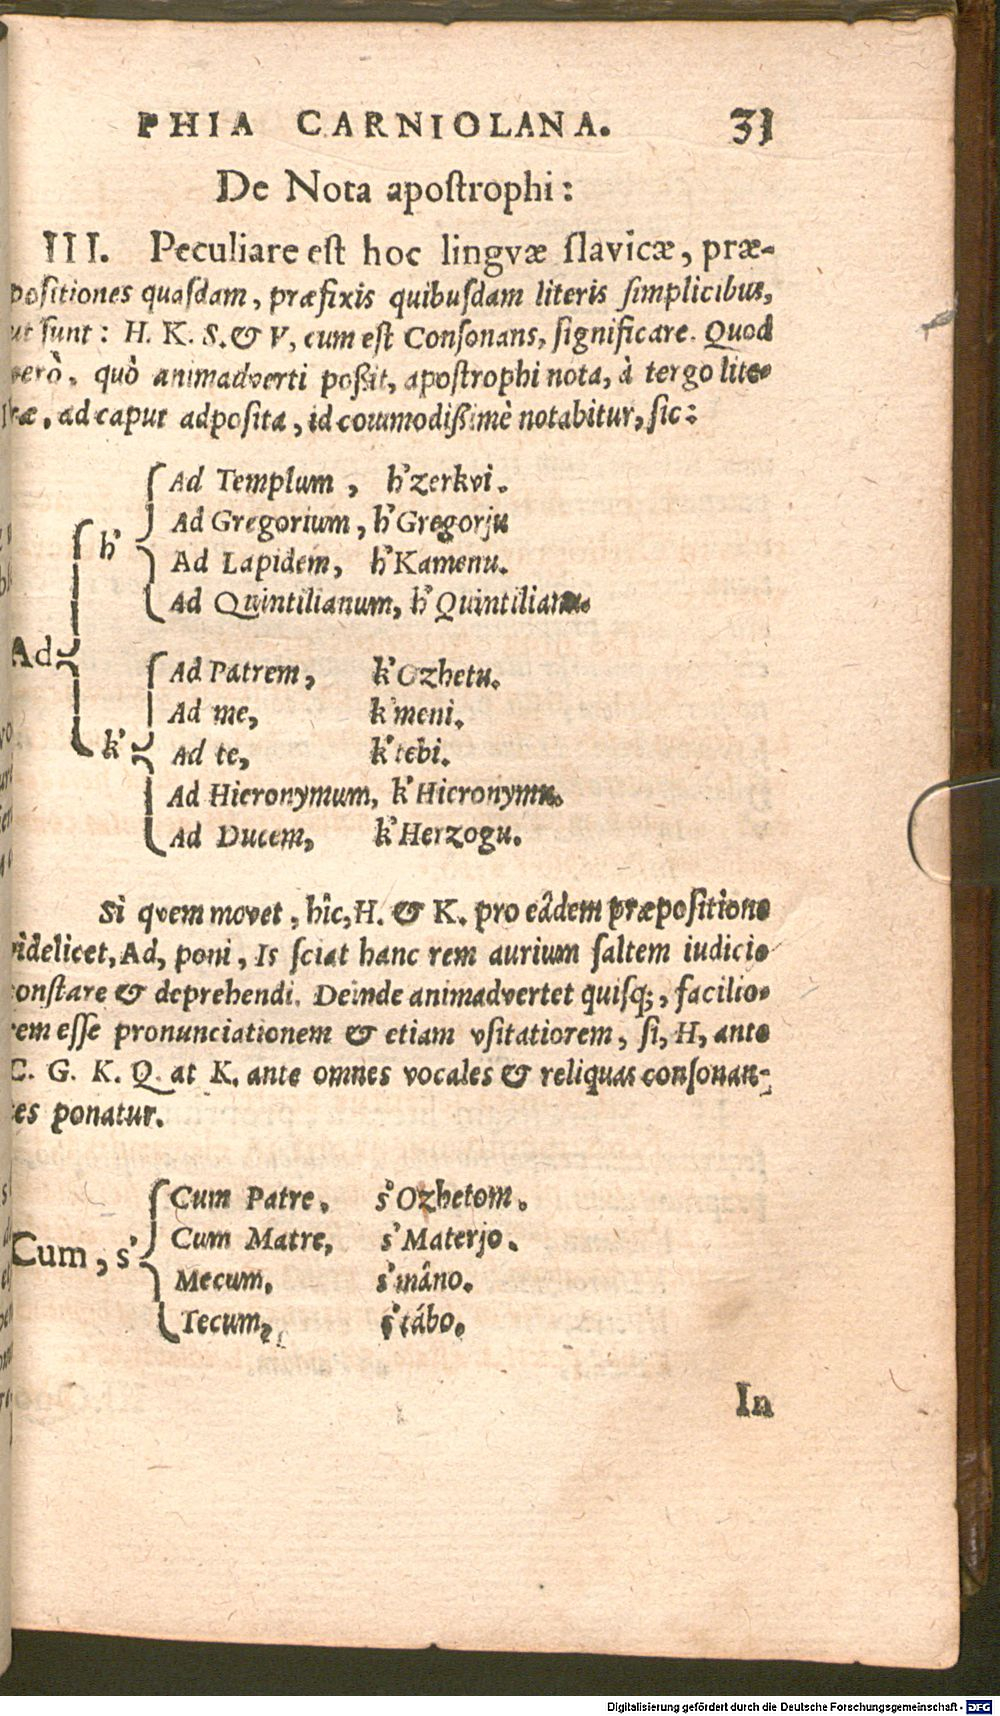 PHIA CARNIOLANA. 31
De Nota apoſtrophi:
III. Peculiare eſt hoc lingvæ ſlavicæ, præ-
poſitiones quaſdam, præfixis quibuſdam literis ſimplicibus,
ut ſunt: H. K. S. & V, cum eſt Conſonans, ſignificare. Quod
verò, quò animadverti poßit, apoſtrophi nota, à tergo lite-
ræ, ad caput adpoſita, id commodißimè notabitur, ſic:
Ad Templum, h'zerkvi.
Ad Gregorium, h'Gregorju
h'
Ad Lapidem, h'Kamenu.
Ad Quintilianum, h'Quintilianu.
Ad
Ad Patrem, k'Ozhetu.
Ad me, k'meni.
k'
Ad te, k'tebi.
Ad Hieronymum, k'Hieronymu.
Ad Ducem, k'Herzogu.
Si qvem movet, hîc, H. & K. pro eâdem præpoſitione
videlicet, Ad, poni, Is ſciat hanc rem aurium ſaltem iudicio
conſtare & deprehendi. Deinde animadvertet quiſq;, facilio-
rem eſſe pronunciationem & etiam vſitatiorem, ſi, H, ante
C. G. K. Q. at K. ante omnes vocales & reliquas conſonan-
tes ponatur.
Cum Patre, s'Ozhetom.
Cum Matre, s'Materjo.
Cum, s'
Mecum, s'mâno.
Tecum, s'tábo.
In
Digitalisierung gefördert durch die Deutsche Forschungsgemeinschaft - DFG